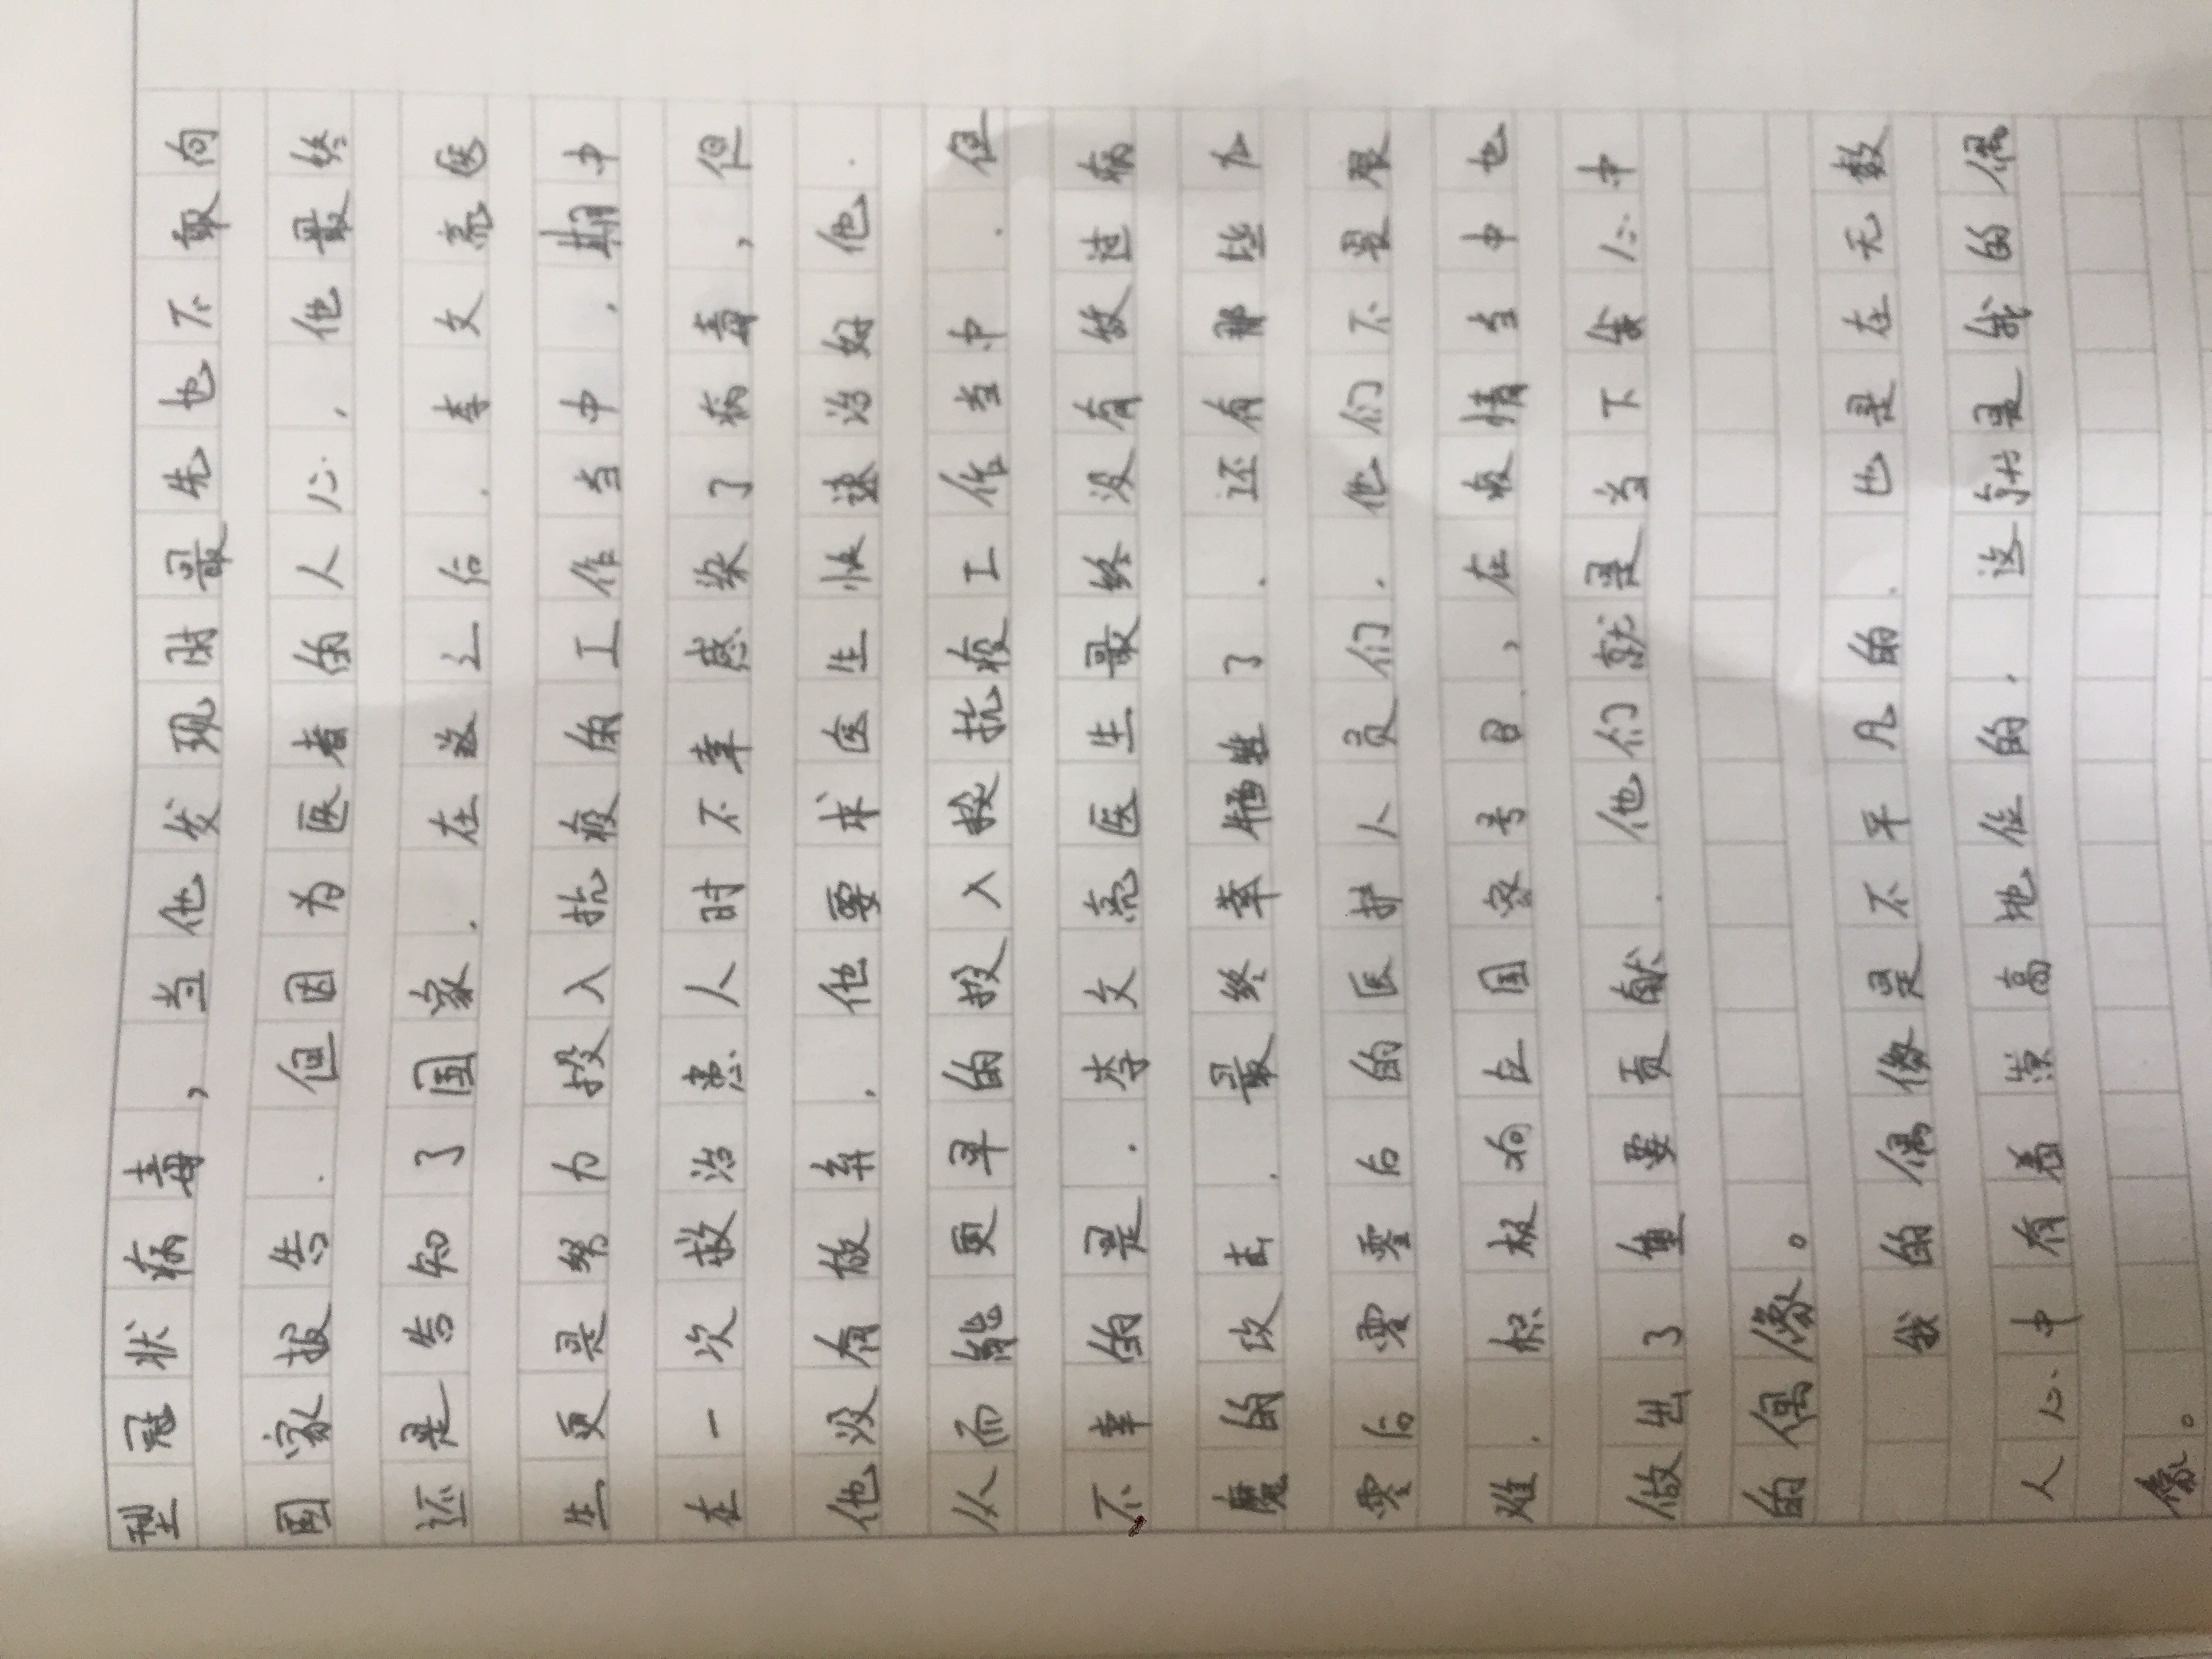 型冠状病毒,当他发现时最先也不敢向
国家报告.但因为医者的人心,他最终
还是告知了国家.在这之后.李文亮医
生更是努力投入抗疫的工作当中.期中
在一次救治患人时不幸感染了病毒,但
他没有放弃.他要求医生快速治好他.
从而能更早的投入投抗疫工作当中.但
不幸的是.李文亮医生最终没有做过病
魔的攻击.最终幸牺牲了.还有那些九
零后零零后的医护人员们.他们不畏艰
难.积极响应国家号召,在疫情当中也
做出了重要贡献.他们就是当下年心中
的偶像。
我的偶像是不平凡的.也是在无数
人心中有着崇高地位的.这就是我的偶
像。